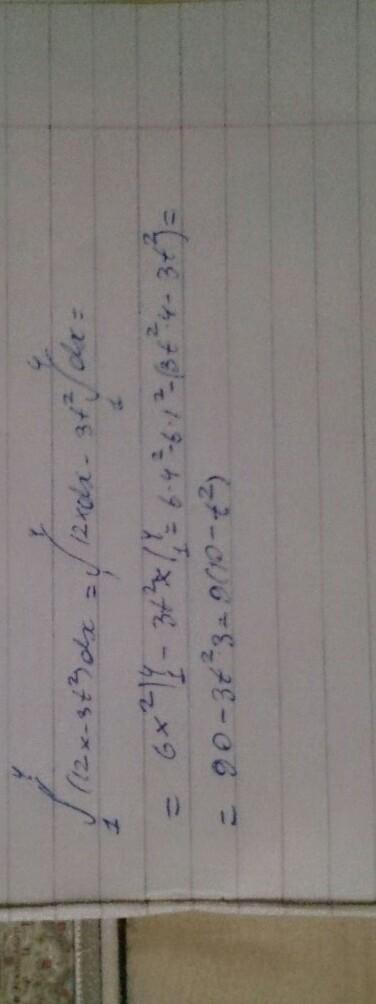 ∫₁⁴ (12x-3t²)dx = ∫₁⁴ 12xdx - 3t² ∫₁⁴ dx =
= 6x²|₁⁴ - 3t²x|₁⁴ = 6·4² - 6·1² - (3t²·4 - 3t²) =
= 90 - 3t²3 = 9(10 - t²)